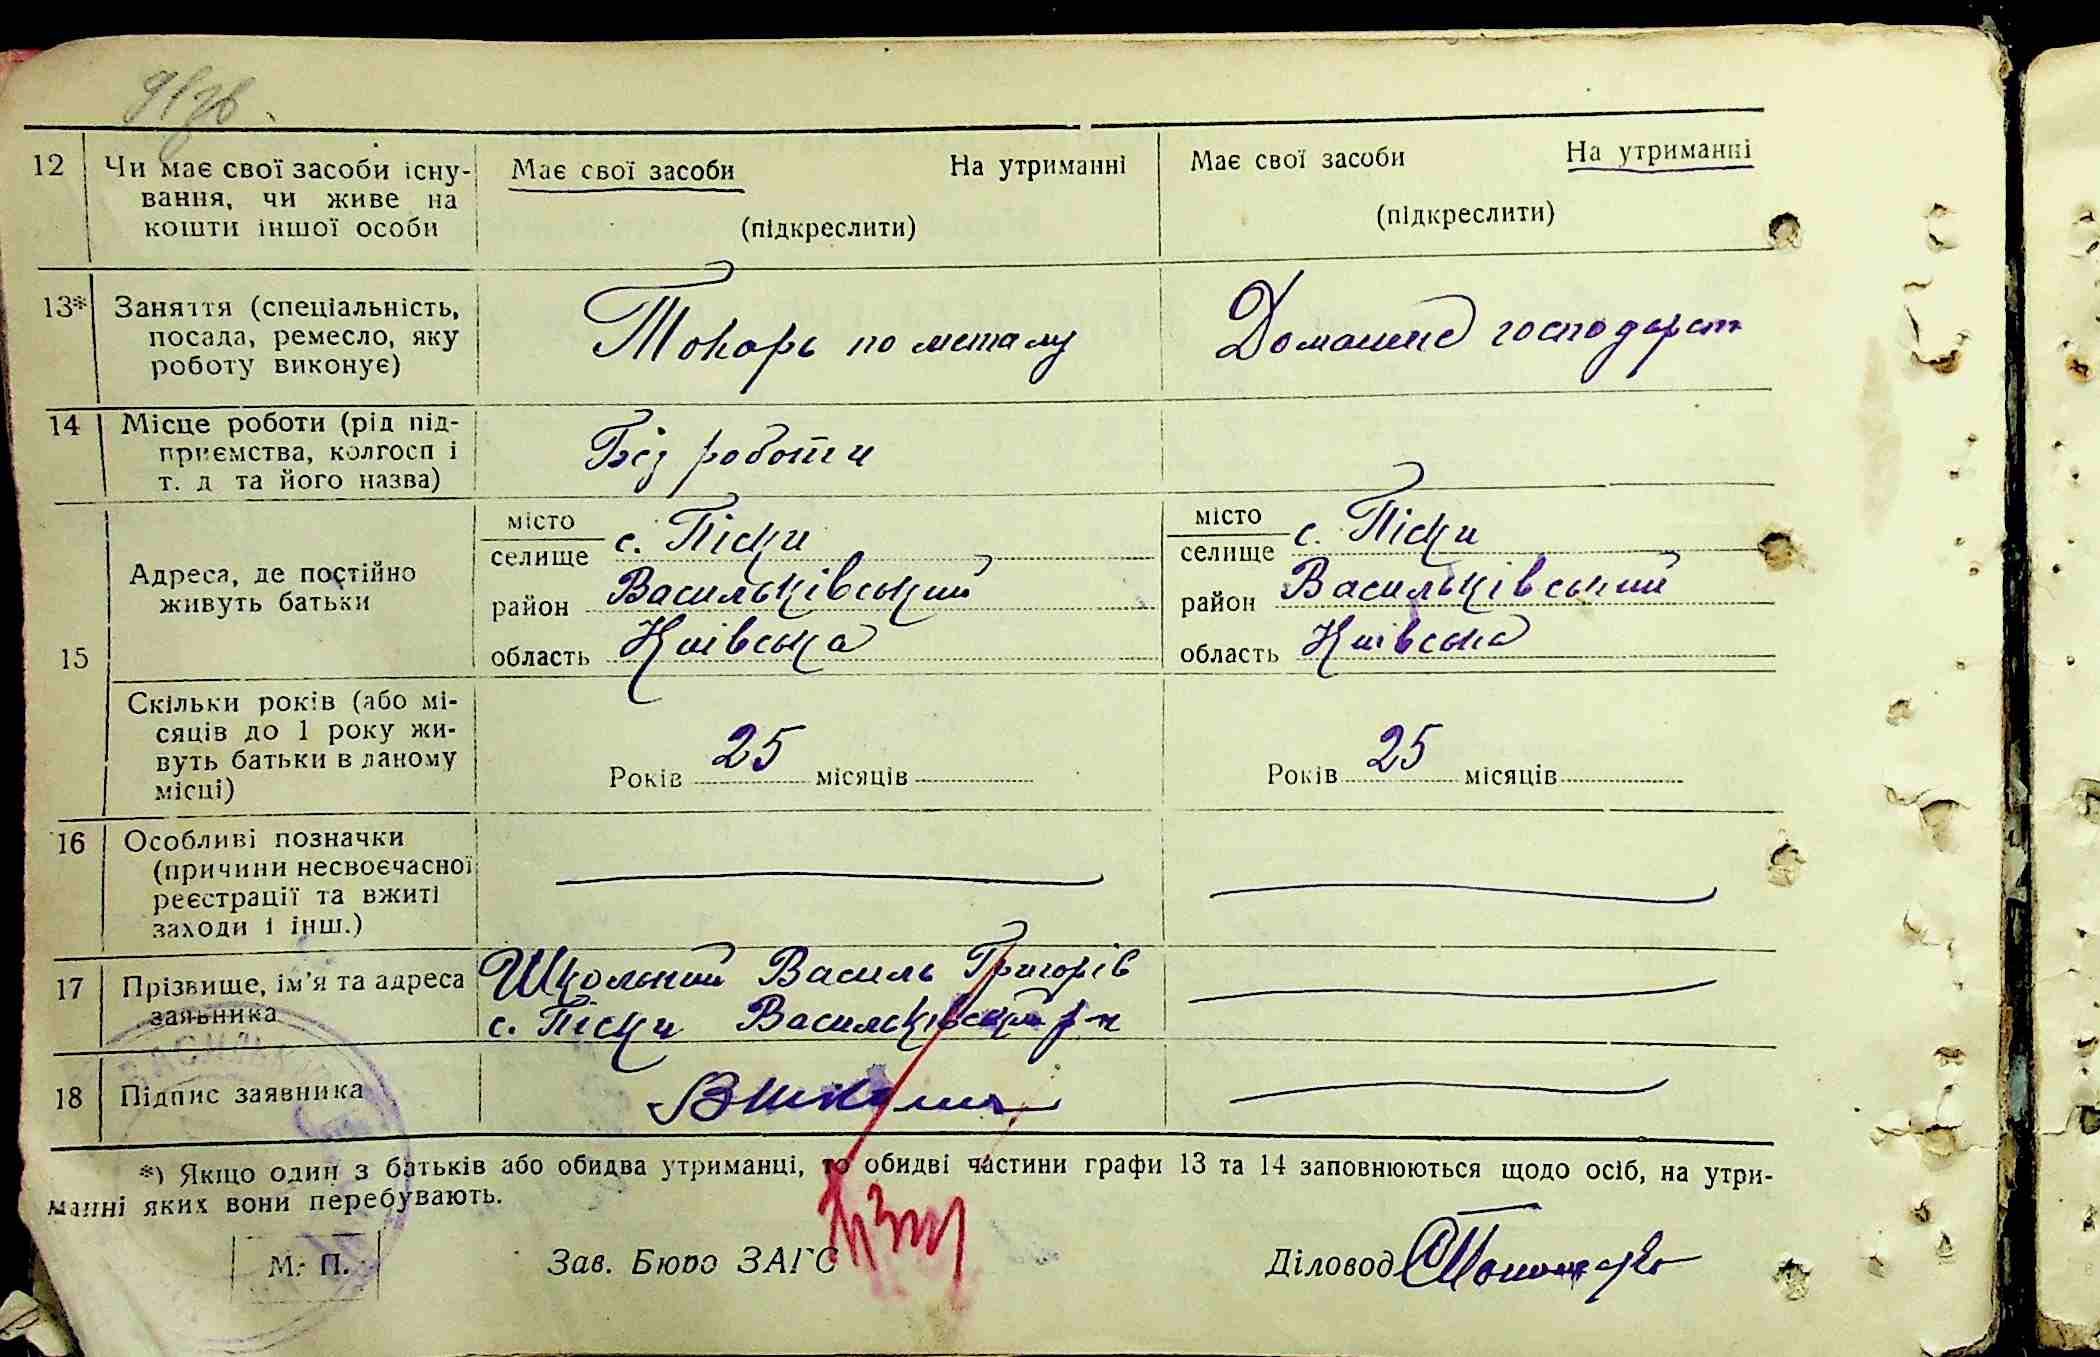 12 Чи має свої засоби існу-
вання, чи живе на
кошти іншої особи
Має свої засоби На утриманні
(підкреслити)
Має свої засоби На утриманні
(підкреслити)
13* Заняття (спеціальність,
посада, ремесло, яку
роботу виконує)
Токарь по металу
Домашнє господарст
14 Місце роботи (рід під-
приємства, колгосп і
т. д та його назва)
Без роботи
15 Адреса, де постійно
живуть батьки
місто
селище с. Піски
район Васильківський
область Київська
місто
селище с. Піски
район Васильківський
область Київська
Скільки років (або мі-
сяців до 1 року жи-
вуть батьки в даному
місці)
Років 25 місяців
Років 25 місяців
16 Особливі позначки
(причини несвоєчасної
реєстрації та вжиті
заходи і інш.)
17 Прізвище, ім'я та адреса
заявника
Школьний Василь Григорів
с. Піски Васильківськ р-н
18 Підпис заявника
*) Якщо один з батьків або обидва утриманці, то обидві частини графи 13 та 14 заповнюються щодо осіб, на утри-
манні яких вони перебувають.
М. П. Зав. Бюро ЗАГС Діловод